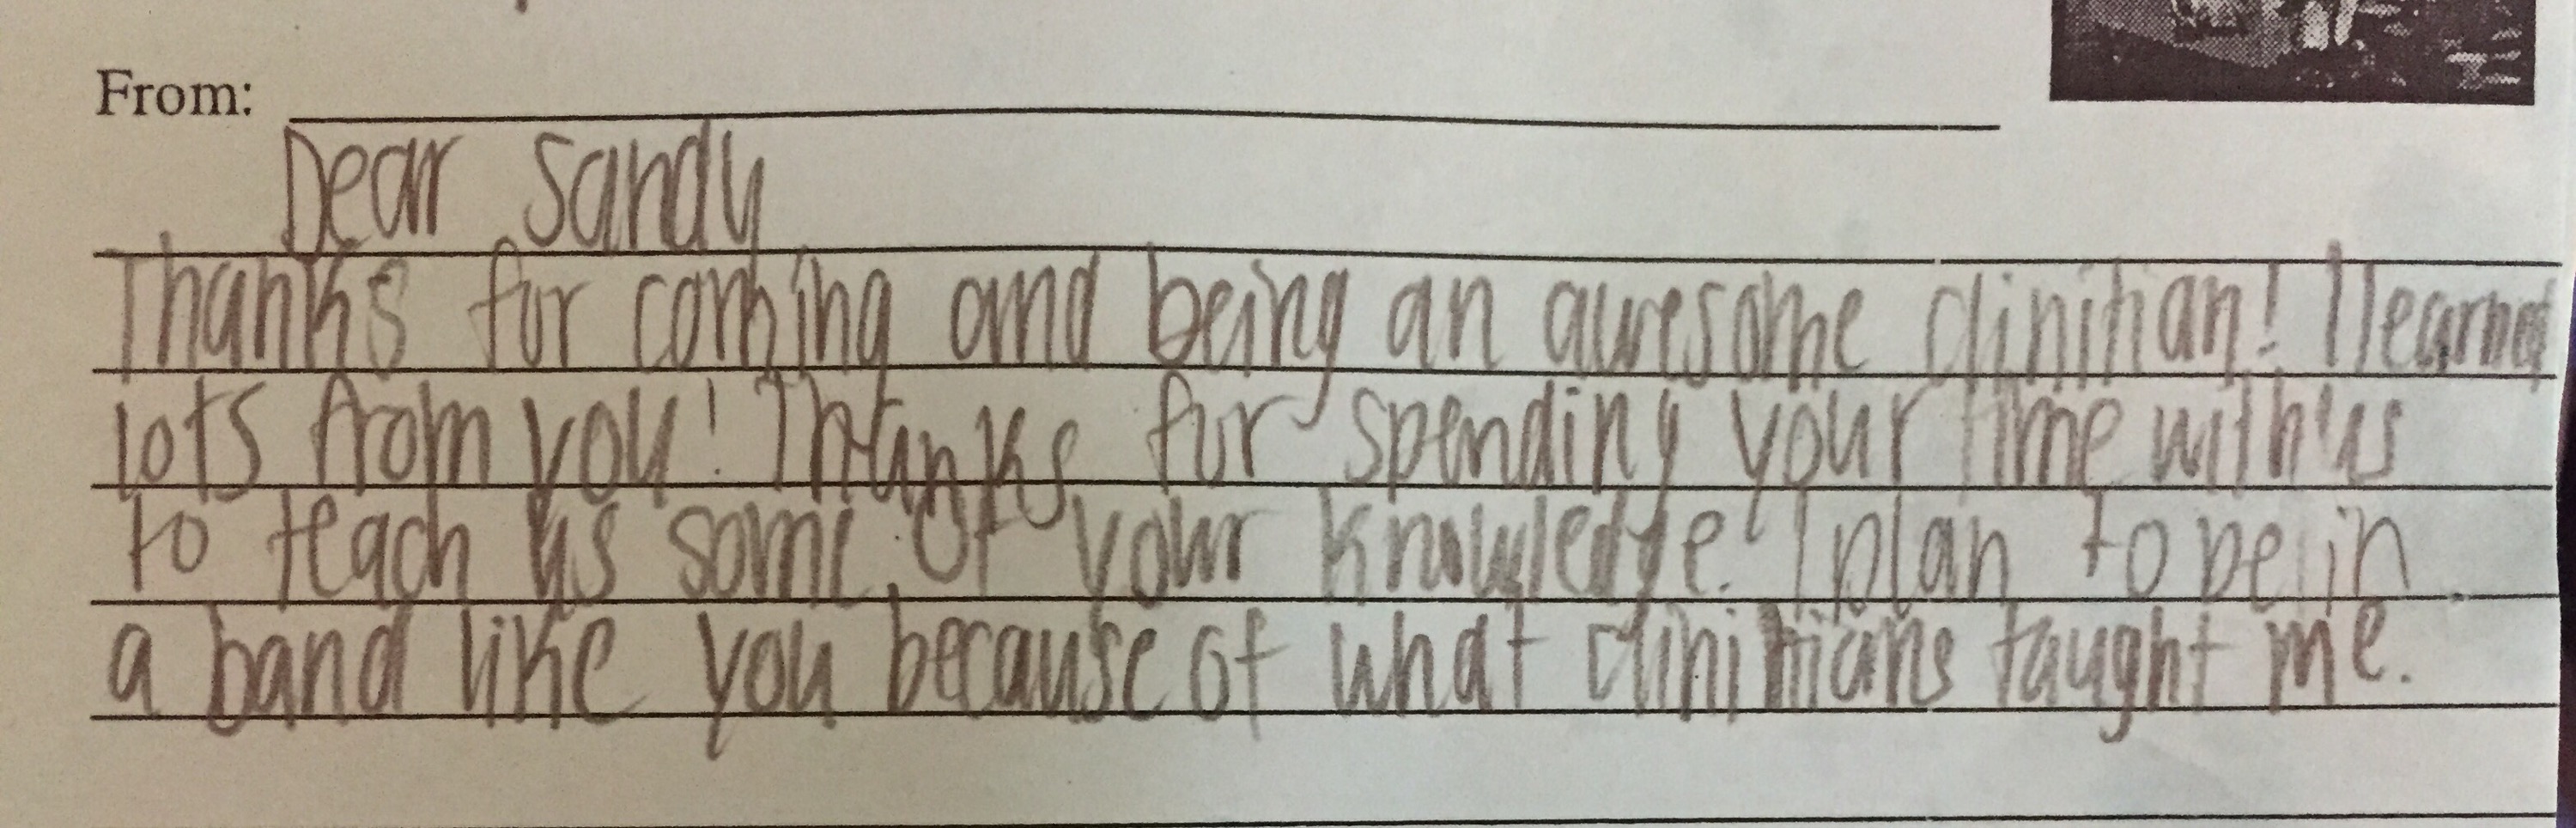 From:
Dear Sandy
Thanks for coming and being an awesome clinitian! I learned
lots from you! Thanks for spending your time with us
to teach us some of your knowledge. I plan to be in
a band like you because of what clinitians taught me.